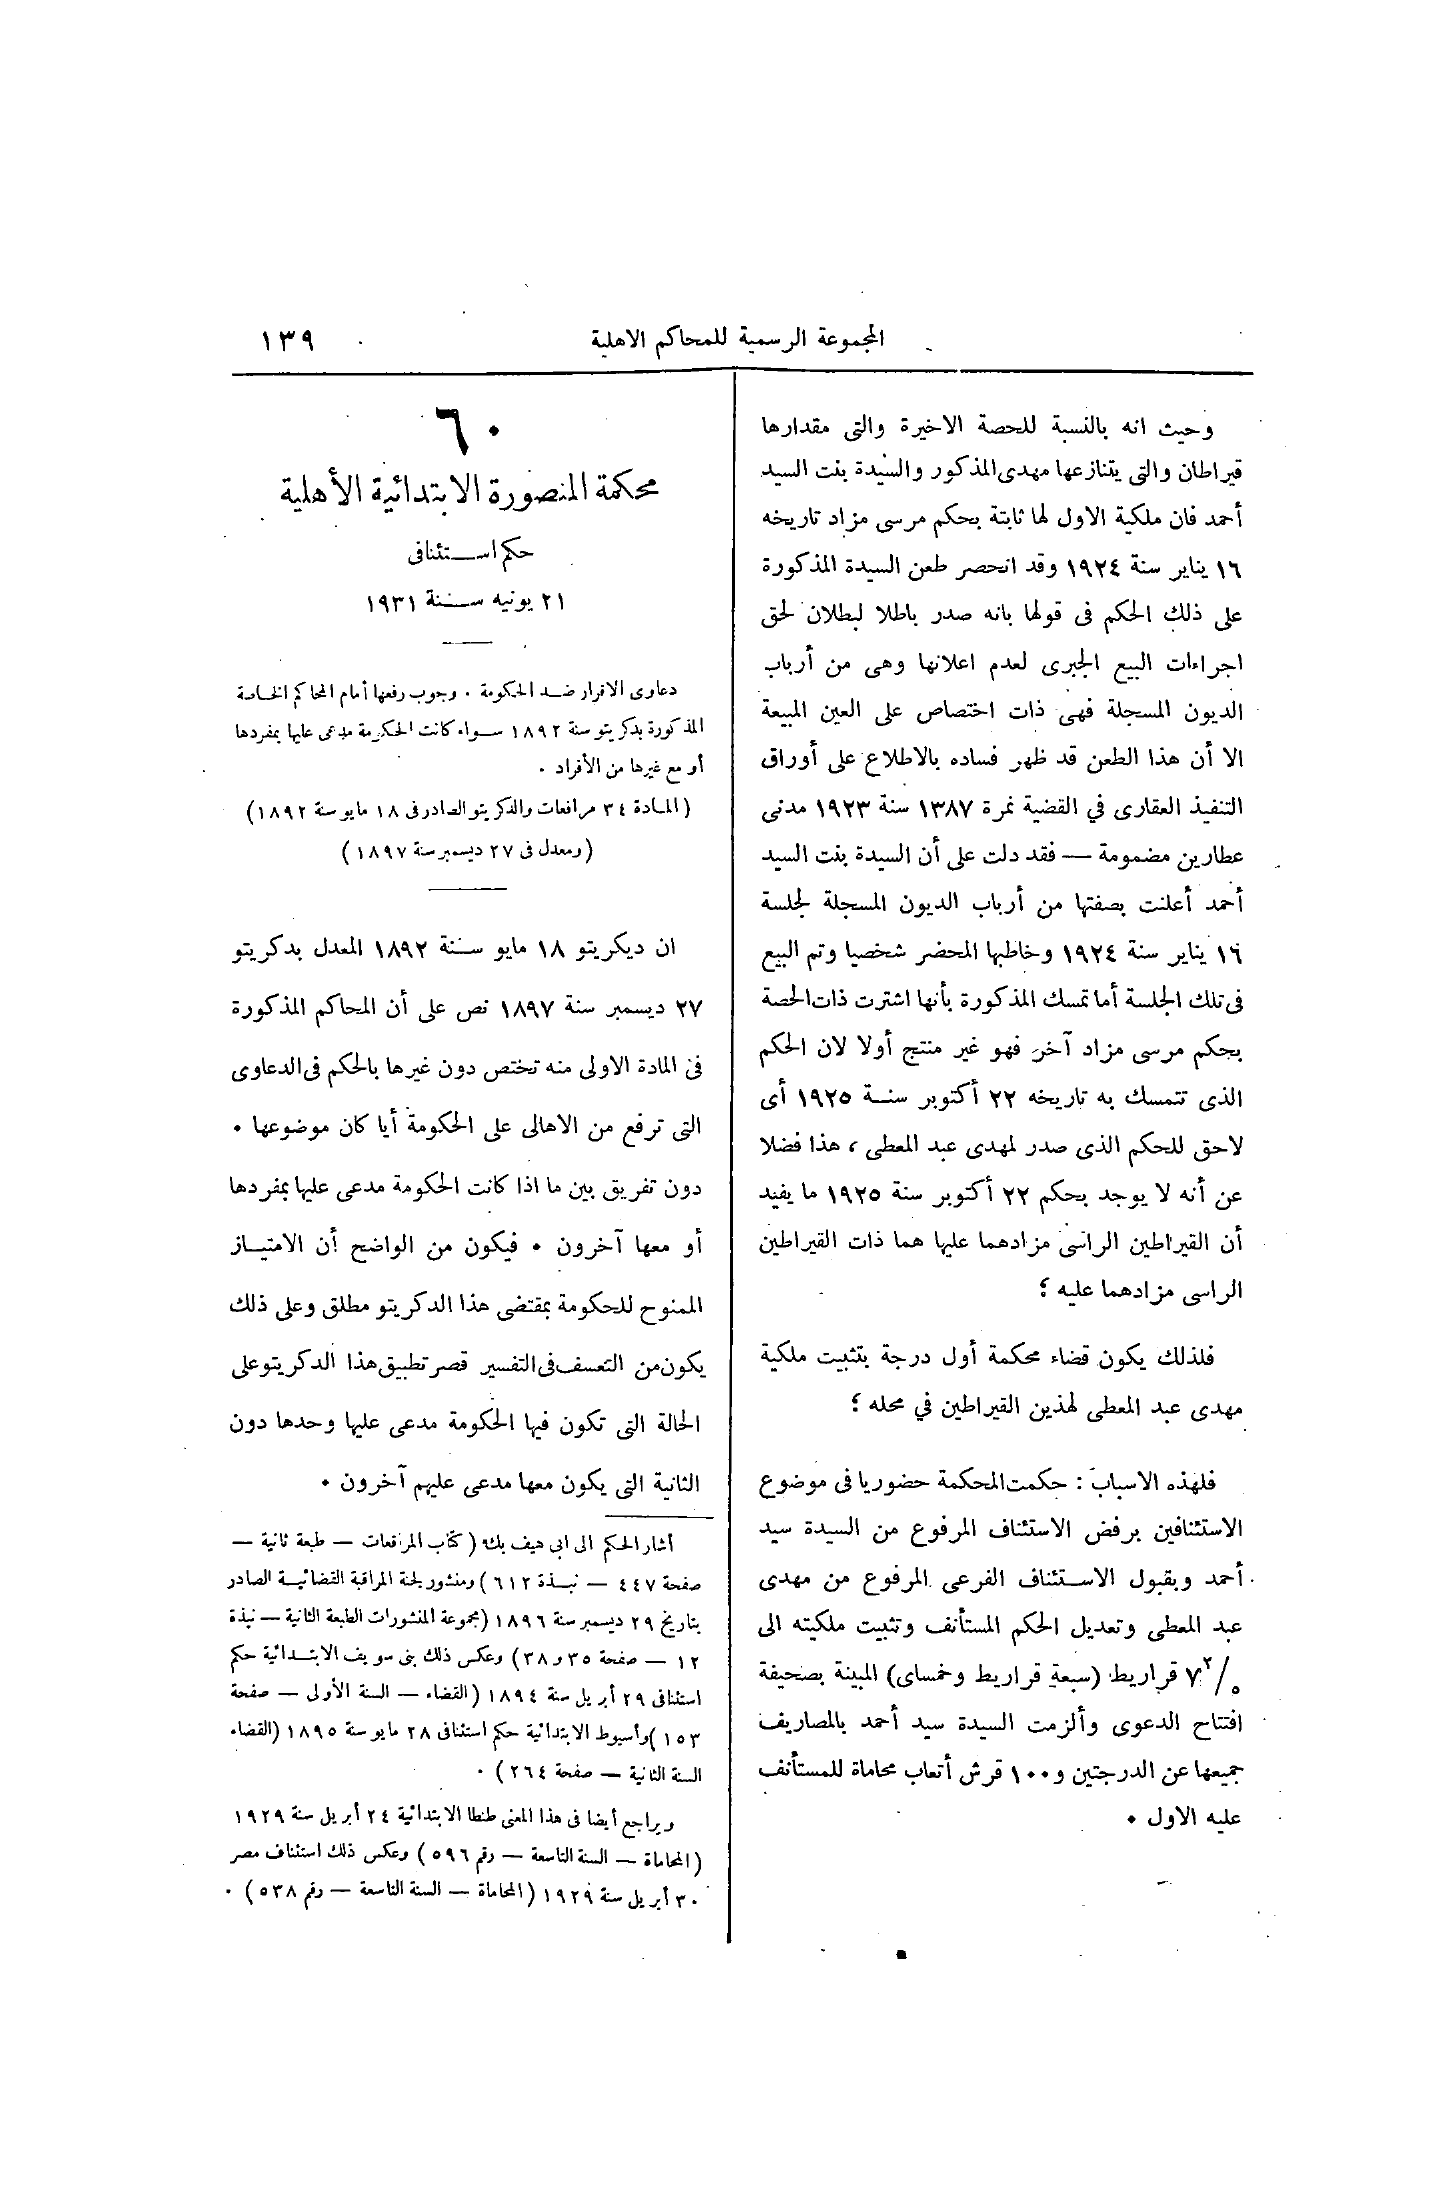 المجموعة الرسمية للمحاكم الاهلية
١٣٩
وحيث انه بالنسبة للحصة الاخيرة والتى مقدارها
قيراطان والتى يتنازعها مهدى المذكور والسيدة بنت السيد
أحمد فان ملكية الاول لها ثابتة بحكم مرسى مزاد تاريخه
١٦ يناير سنة ١٩٢٤ وقد انحصر طعن السيدة المذكورة
على ذلك الحكم فى قولها بانه صدر باطلا لبطلان لحق
اجراءات البيع الجبرى لعدم اعلانها وهى من أرباب
الديون المسجلة فهى ذات اختصاص على العين المبيعة
الا أن هذا الطعن قد ظهر فساده بالاطلاع على أوراق
التنفيذ العقارى في القضية نمرة ١٣٨٧ سنة ١٩٢٣ مدنى
عطارين مضمومة — فقد دلت على أن السيدة بنت السيد
أحمد أعلنت بصفتها من أرباب الديون المسجلة لجلسة
١٦ يناير سنة ١٩٢٤ وخاطبها المحضر شخصيا وتم البيع
فى تلك الجلسة أما تمسك المذكورة بأنها اشترت ذات الحصة
بحكم مرسى مزاد آخر فهو غير منتج أولا لان الحكم
الذى تتمسك به تاريخه ٢٢ أكتوبر سنة ١٩٢٥ أى
لاحق للحكم الذى صدر لمهدى عبد المعطى ، هذا فضلا
عن أنه لا يوجد بحكم ٢٢ أكتوبر سنة ١٩٢٥ ما يفيد
أن القيراطين الراسى مزادهما عليها هما ذات القيراطين
الراسى مزادهما عليه ؛
فلذلك يكون قضاء محكمة أول درجة بتثبيت ملكية
مهدى عبد المعطى لهذين القيراطين في محله ؛
فلهذه الاسباب : حكمت المحكمة حضوريا فى موضوع
الاستئنافين برفض الاستئناف المرفوع من السيدة سيد
أحمد وبقبول الاستئناف الفرعى المرفوع من مهدى
عبد المعطى وتعديل الحكم المستأنف وتثبيت ملكيته الى
٧ ٢/٥ قراريط (سبعة قراريط وخمساى) المبينة بصحيفة
افتتاح الدعوى وألزمت السيدة سيد أحمد بالمصاريف
جميعها عن الدرجتين و١٠٠ قرش أتعاب محاماة للمستأنف
عليه الاول .
٦٠
محكمة المنصورة الابتدائية الأهلية
حكم استئنافى
٢١ يونيه سنة ١٩٣١
دعاوى الافرار ضد الحكومة . وجوب رفعها أمام المحاكم الخاصة
المذكورة بدكريتو سنة ١٨٩٢ سواء كانت الحكومة مدعى عليها بمفردها
أو مع غيرها من الأفراد .
(المادة ٣٤ مرافعات والدكريتو الصادر فى ١٨ مايو سنة ١٨٩٢)
(ومعدل فى ٢٧ ديسمبر سنة ١٨٩٧)
ان ديكريتو ١٨ مايو سنة ١٨٩٢ المعدل بدكريتو
٢٧ ديسمبر سنة ١٨٩٧ نص على أن المحاكم المذكورة
فى المادة الاولى منه تختص دون غيرها بالحكم فى الدعاوى
التى ترفع من الاهالى على الحكومة أيا كان موضوعها .
دون تفريق بين ما اذا كانت الحكومة مدعى عليها بمفردها
أو معها آخرون . فيكون من الواضح أن الامتياز
الممنوح للحكومة بمقتضى هذا الدكريتو مطلق وعلى ذلك
يكون من التعسف فى التفسير قصر تطبيق هذا الدكريتو على
الحالة التى تكون فيها الحكومة مدعى عليها وحدها دون
الثانية التى يكون معها مدعى عليهم آخرون .
أشار الحكم الى ابى هيف بك (كتاب المرافعات — طبعة ثانية —
صفحة ٤٤٧ — نبذة ٦١٢) ومنشور لجنة المراقبة القضائية الصادر
بتاريخ ٢٩ ديسمبر سنة ١٨٩٦ (مجموعة المنشورات الطبعة الثانية — نبذة
١٢ — صفحة ٣٥ و٣٨) وعكس ذلك بنى سويف الابتدائية حكم
استئنافى ٢٩ أبريل سنة ١٨٩٤ (القضاء — السنة الأولى — صفحة
١٥٣) وأسيوط الابتدائية حكم استئنافى ٢٨ مايو سنة ١٨٩٥ (القضاء
السنة الثانية — صفحة ٢٦٤) .
ويراجع أيضا فى هذا المعنى طنطا الابتدائية ٢٤ أبريل سنة ١٩٢٩
(المحاماة — السنة التاسعة — رقم ٥٩٦) وعكس ذلك استئناف مصر
٣٠ أبريل سنة ١٩٢٩ (المحاماة — السنة التاسعة — رقم ٥٣٨) .